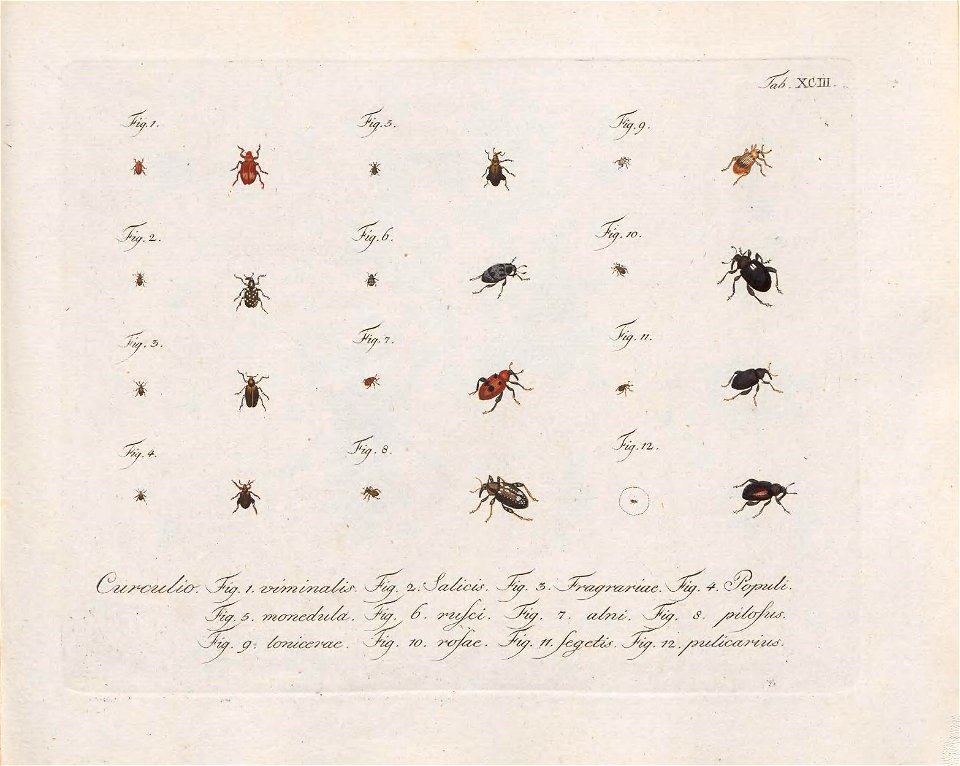 Tab. XCIII.
Fig. 1.
Fig. 5.
Fig. 9.
Fig. 2.
Fig. 6.
Fig. 10.
Fig. 3.
Fig. 7.
Fig. 11.
Fig. 4.
Fig. 8.
Fig. 12.
Curculio. Fig. 1. viminalis. Fig. 2. Salicis. Fig. 3. Fragrariae. Fig. 4. Populi.
Fig. 5. monedula. Fig. 6. ruſci. Fig. 7. alni. Fig. 8. piloſus.
Fig. 9. lonicerae. Fig. 10. roſae. Fig. 11. ſegetis. Fig. 12. pulicarius.